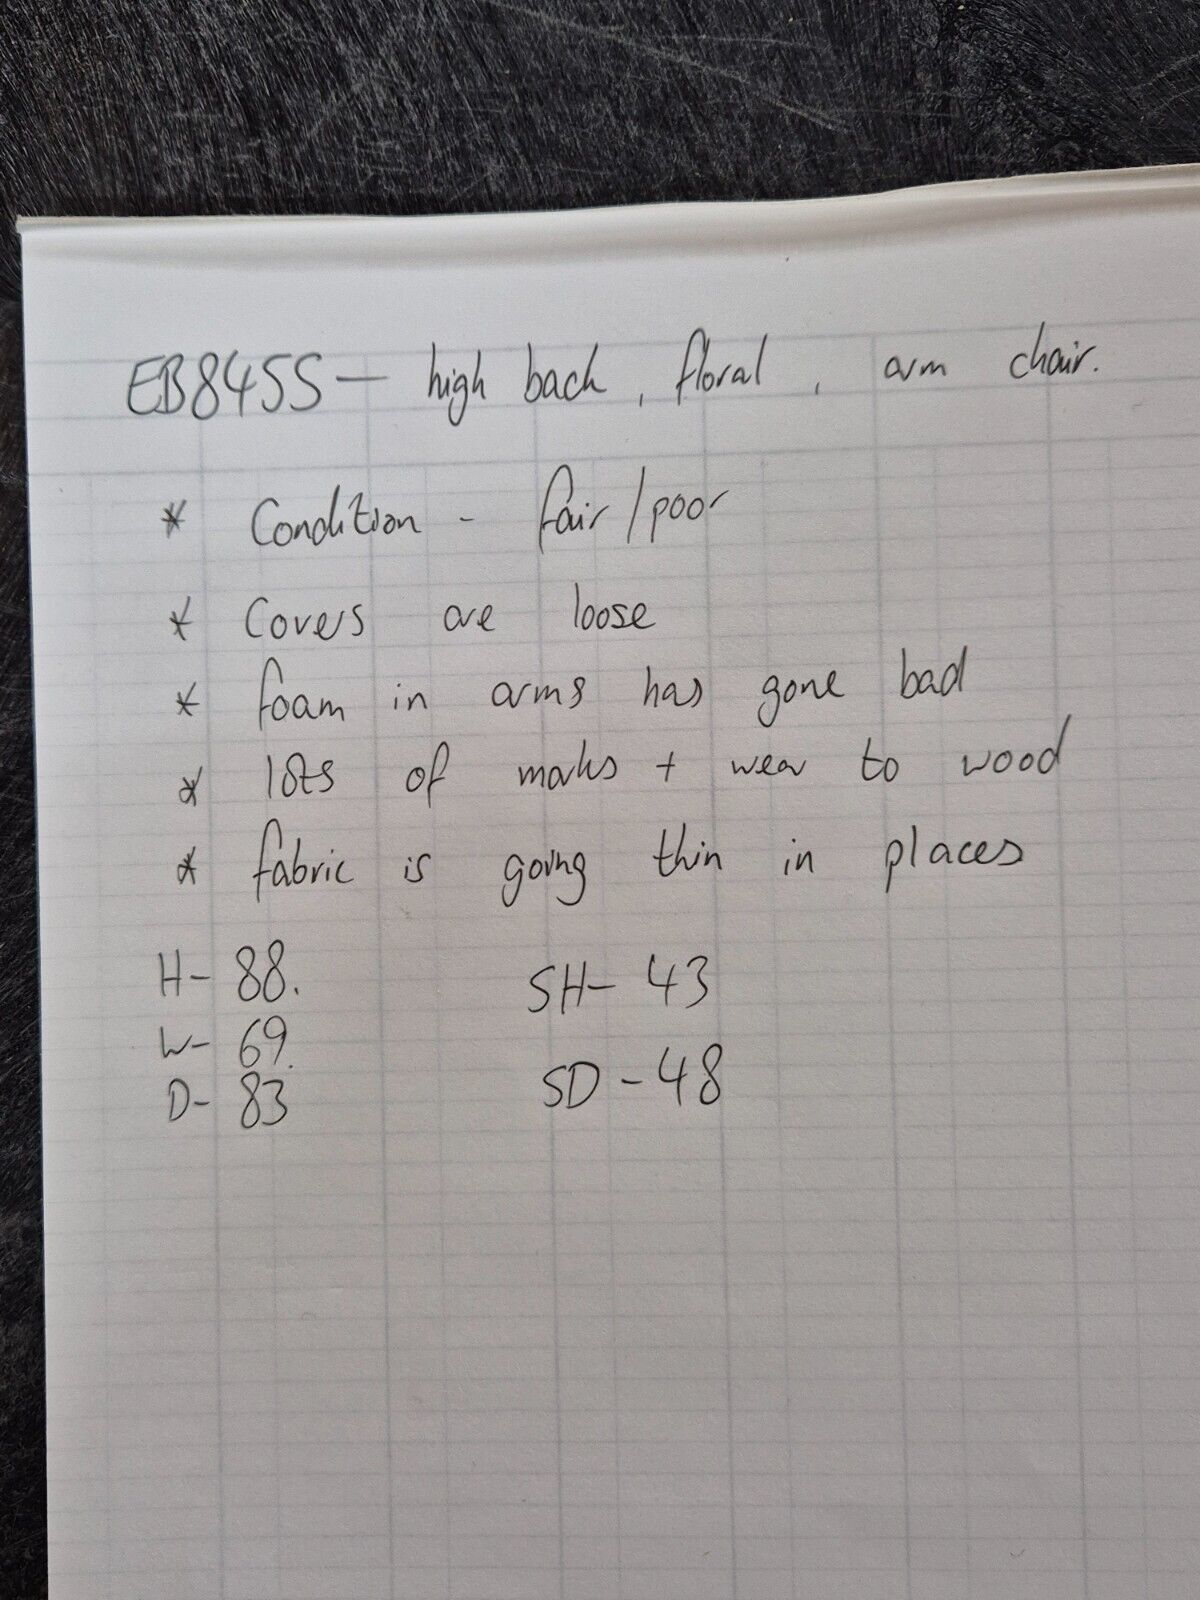 EB8455 - high back, floral, arm chair.
* Condition - fair/poor
* Covers are loose
* foam in arms has gone bad
* lots of marks + wear to wood
* fabric is going thin in places
H- 88. SH- 43
W- 69.
D- 83 SD - 48